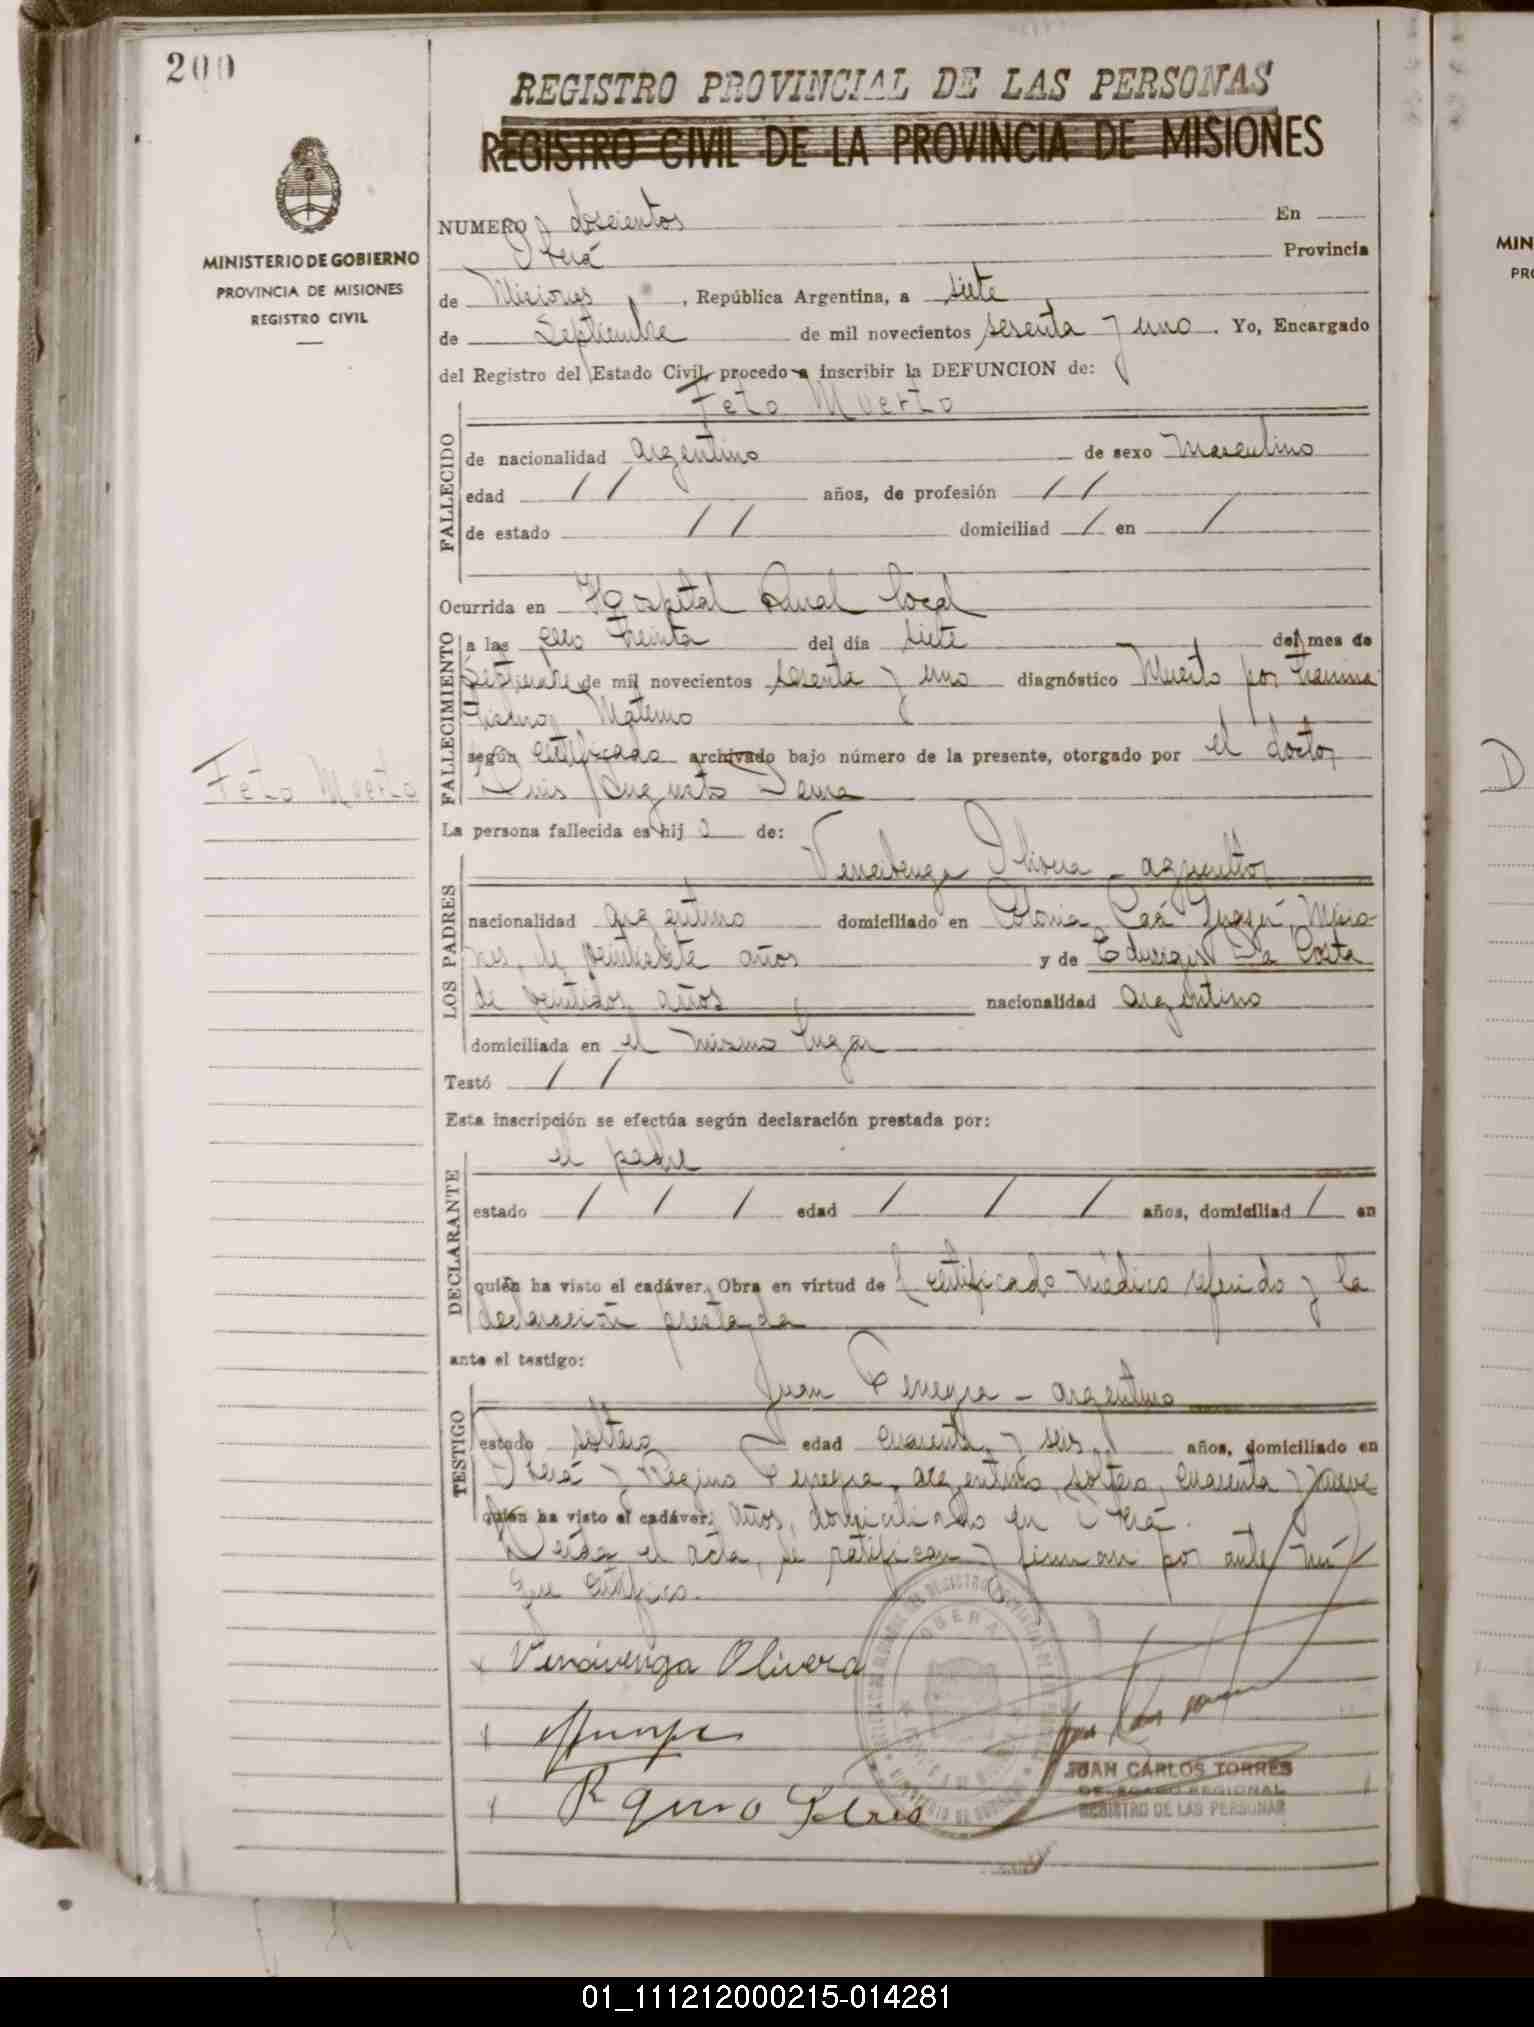 200
REGISTRO PROVINCIAL DE LAS PERSONAS
REGISTRO CIVIL DE LA PROVINCIA DE MISIONES
MINISTERIO DE GOBIERNO
PROVINCIA DE MISIONES
REGISTRO CIVIL
NUMERO doscientos En
Oberá Provincia
de Misiones, República Argentina, a siete
de Septiembre de mil novecientos sesenta y uno. Yo, Encargado
del Registro del Estado Civil, procedo a inscribir la DEFUNCION de:
Feto Muerto
FALLECIDO
de nacionalidad argentino de sexo Masculino
edad / / años, de profesión / /
de estado / / domiciliad / en /
Ocurrida en Hospital Rural local
FALLECIMIENTO
a las treinta del día siete del mes de
Septiembre de mil novecientos sesenta y uno diagnóstico Muerto por
Materno
según certificado archivado bajo número de la presente, otorgado por el doctor
Luis Augusto
Feto Muerto
La persona fallecida es hij o de:
LOS PADRES
Olivera - agricultor
nacionalidad argentino domiciliado en Colonia Caá Guazú, Misio-
nes, de veintisiete años y de Eduvigis Da Costa
de veintidos años nacionalidad argentino
domiciliada en el mismo lugar
Testó / /
Esta inscripción se efectúa según declaración prestada por:
el padre
DECLARANTE
estado / / / edad / / / años, domiciliad / en
quién ha visto el cadáver. Obra en virtud de certificado médico referido y la
declaración prestada
ante el testigo:
TESTIGO
Juan - argentino
estado soltero edad cuarenta y seis años, domiciliado en
Oberá y Regino argentino, soltero, cuarenta y nueve
quién ha visto el cadáver. años, domiciliado en Oberá.
Leída el acta, se ratifican y firman por ante mí
que certifico.
Olivera
OBERA
JUAN CARLOS TORRES
DELEGADO REGIONAL
REGISTRO DE LAS PERSONAS
MIN
PRO
D
01_111212000215-014281